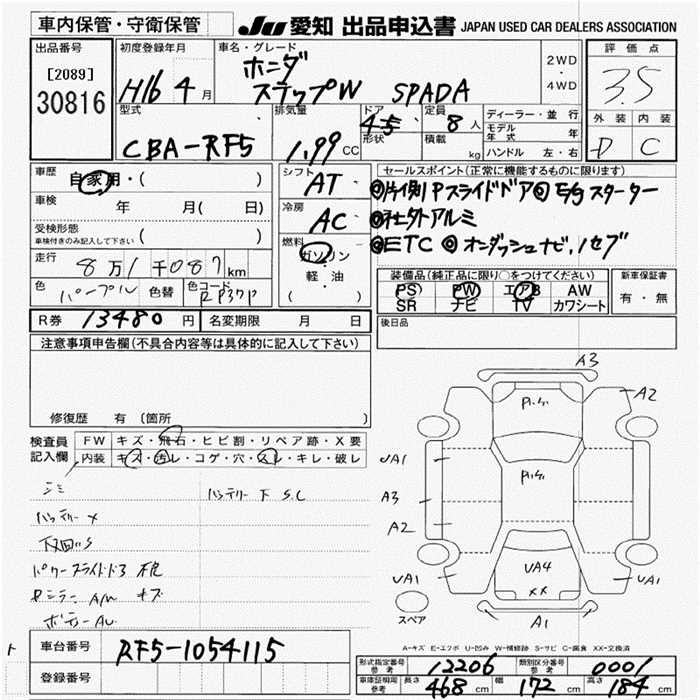 車内保管・守衛保管
JU 愛知 出品申込書 JAPAN USED CAR DEALERS ASSOCIATION
出品番号
[2089]
30816
初度登録年月
H16 4 月
車名・グレード
ホンダ
ステップW SPADA
2WD
・
4WD
評価点
3.5
外装 内装
D C
型式
CBA-RF5
排気量
1.99 CC
ドア
45
形状
定員
8 人
積載
kg
ディーラー・並行
モデル年式 年
ハンドル 左・右
車歴
自家用・( )
車検
年 月( 日)
受検形態
車検付きのみ記入して下さい ( )
走行
8万1千087 km
色
パープル
色替
色コード
RP37P
シフト
AT
冷房
AC
燃料
ガソリン
・
軽・油
( )
セールスポイント(正常に機能するものに限ります)
◎片側Pスライドドア◎E/gスターター
◎社外アルミ
◎ETC ◎オンダッシュナビ,1セグ
装備品(純正品に限り○をつけてください)
PS PW エアB AW
SR ナビ TV カワシート
新車保証書
有・無
R券 13480 円
名変期限 月 日
後日品
注意事項申告欄(不具合内容等は具体的に記入して下さい)
修復歴 有 (箇所 )
検査員
記入欄
FW キズ・飛石・ヒビ割・リペア跡・X要
内装 キズ・汚レ・コゲ・穴・スレ・キレ・破レ
シミ
バッテリー下 S.C
バッテリー X
下回りS
パワースライドドア 不良
A/W キズ
A3
A2
UA1
A3
A2
UA1
UA4
XX
UA1
A1
スペア
A-キズ E-エクボ U-凹み W-補修跡 S-サビ C-腐食 XX-交換済
車台番号
RF5-1054115
登録番号
形式指定番号
参考
12206
類別区分番号
参考
0001
車庫証明用
参考
長さ 468 cm 幅 172 cm 高さ 184 cm